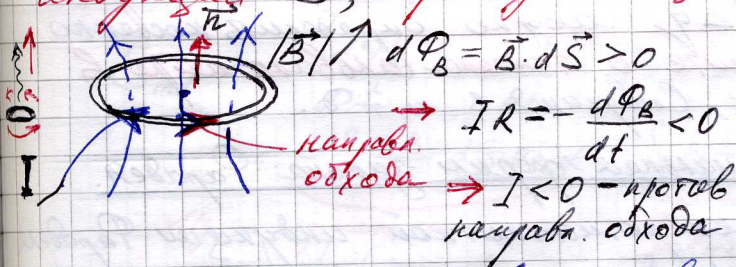 n⃗
|B⃗| ↗ dΦ_B = B⃗·dS⃗ > 0
→ IR = - dΦ_B/dt < 0
направл.
обхода
⇒ I < 0 - против
направл. обхода
I